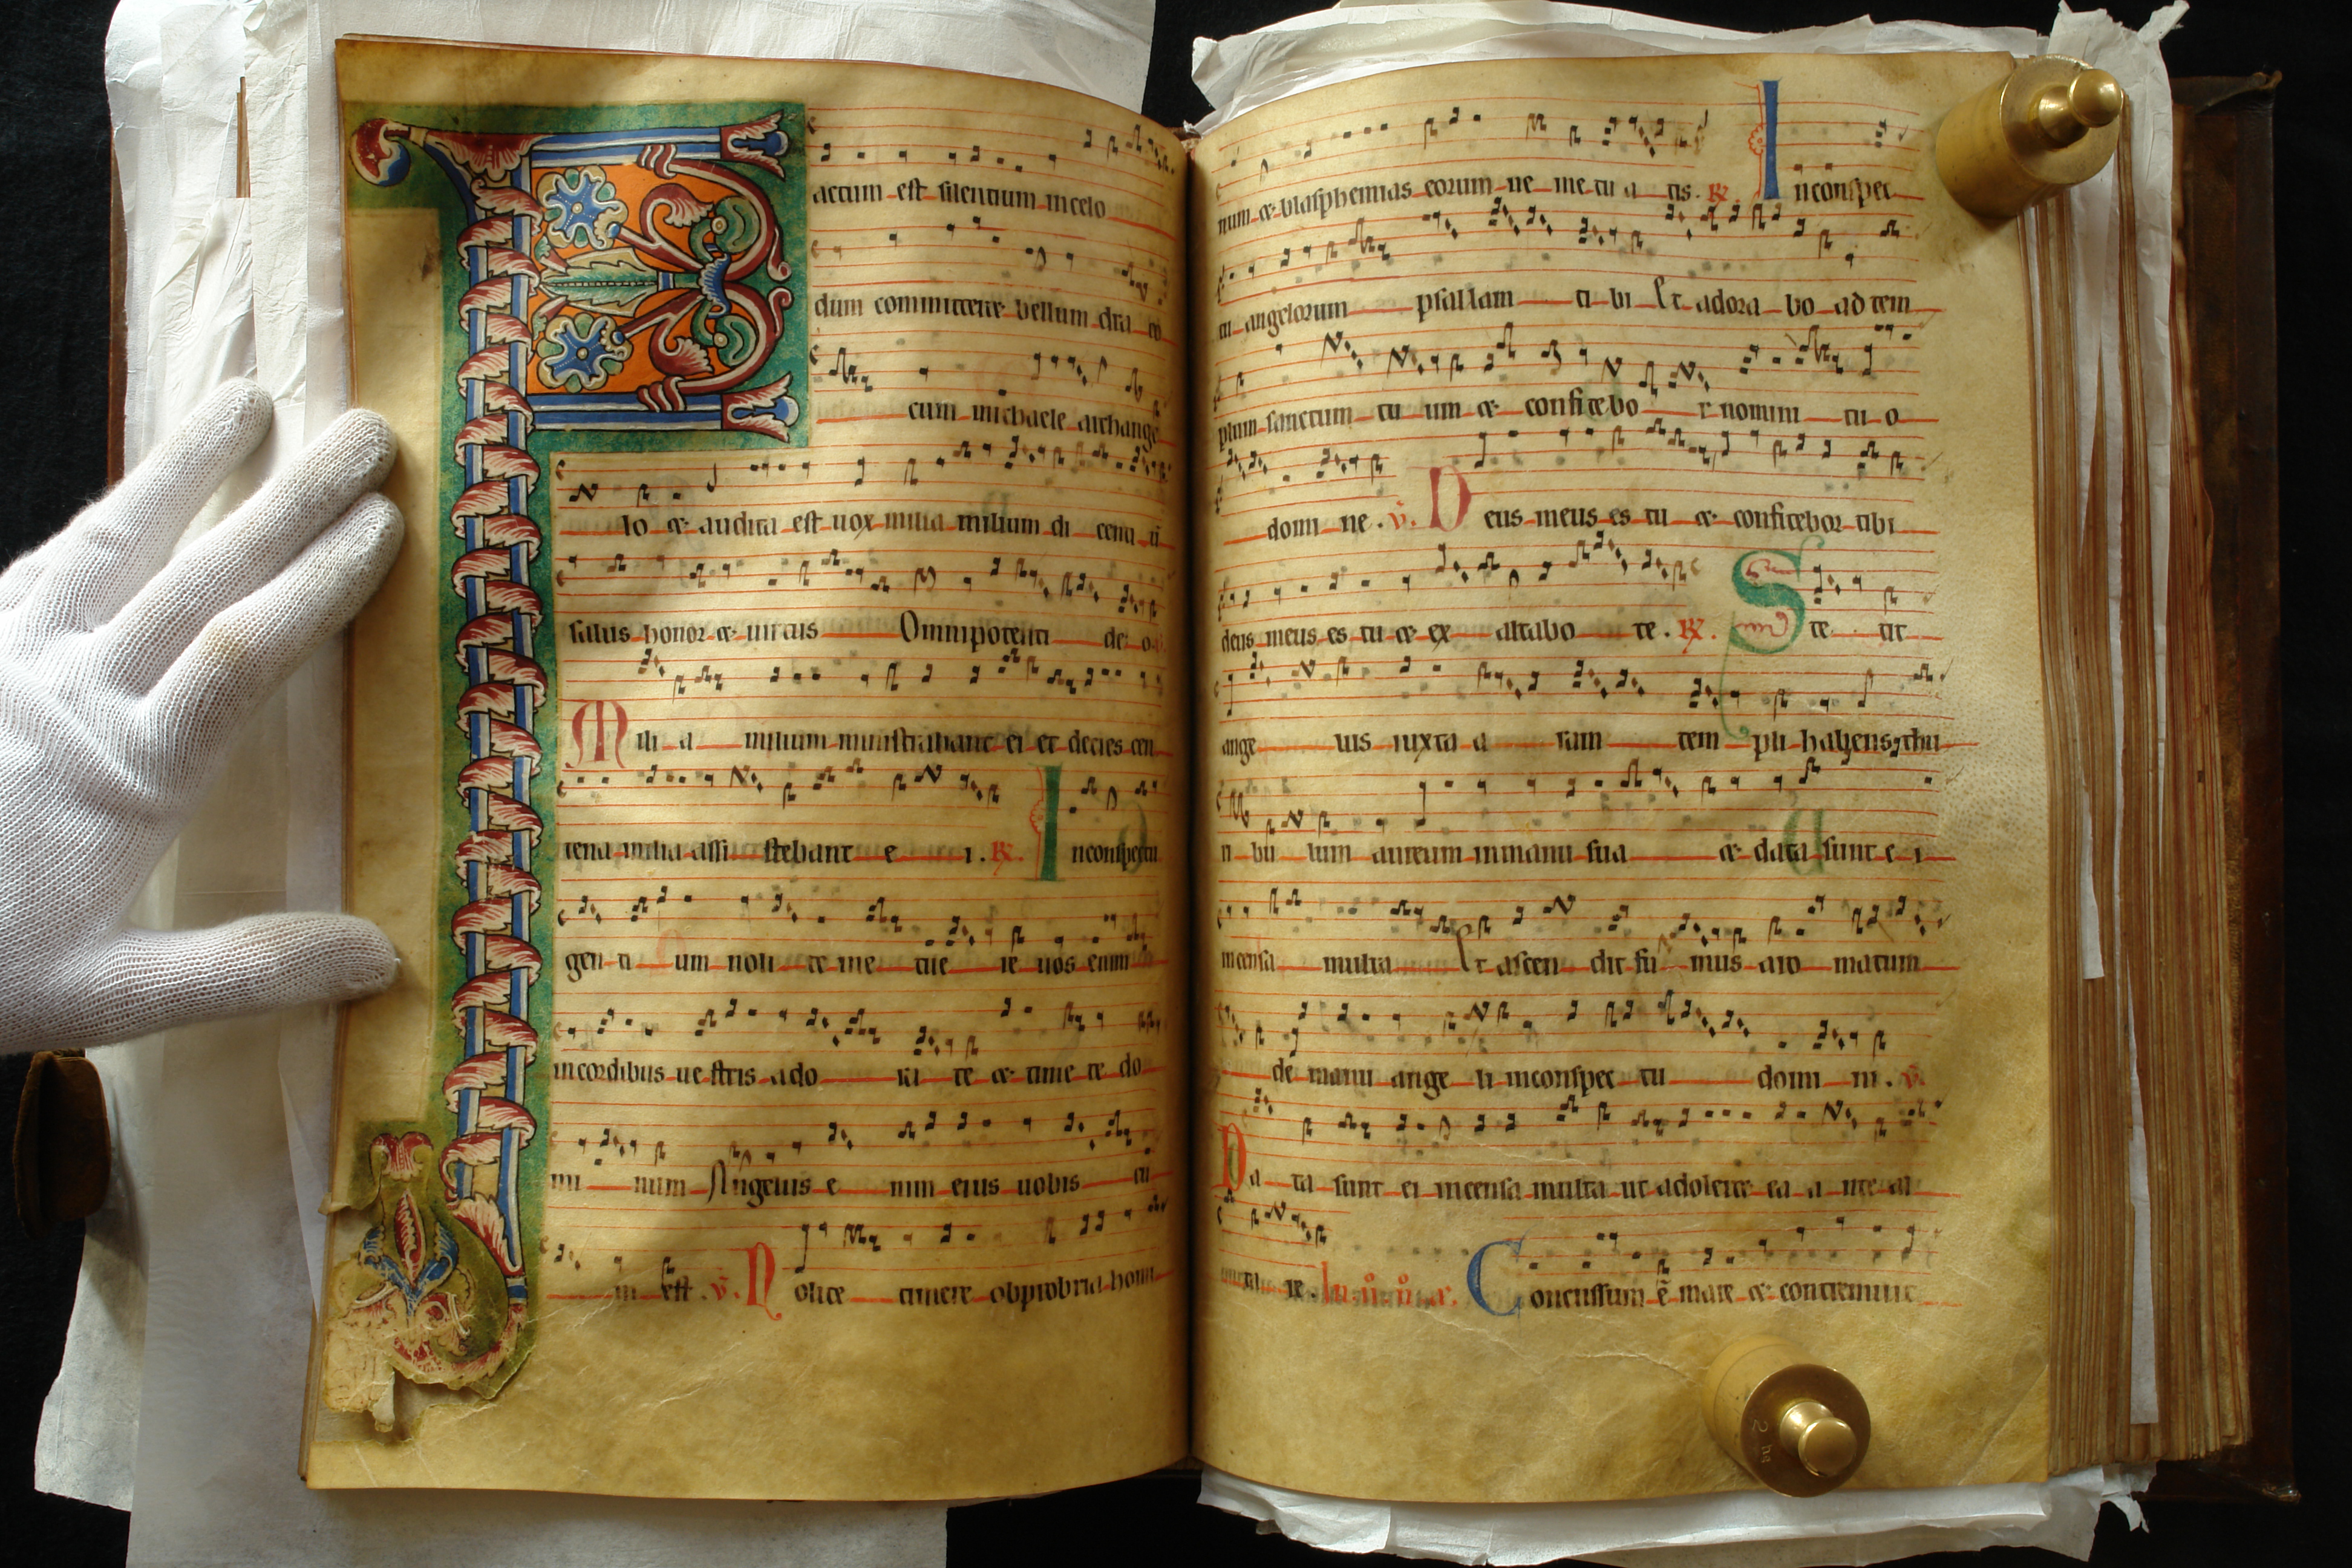 Factum est silentium in celo
dum committeret bellum dra co
cum michaele archange
lo & audita est uox milia milium di centium
salus honor & uirtus Omnipotenti de o
Mili a milium ministrabant ei et decies cen
tena milia assi stebant e i. ℟. In conspectu
gen ti um noli te me tue re uos enim
in cordibus ue stris ado ra te & time te do
mi num Angelus e nim eius uobis cu
m est. v̄. Nolite timere obprobria homi
num & blasphemias eorum ne me tu a tis. ℟. In conspec
tu angelorum psallam ti bi Et adora bo ad tem
plum sanctum tu um & confitebo r nomini tu o
domi ne. v̄. Deus meus es tu & confitebor tibi
deus meus es tu & ex altabo te. ℟. Ste tit
ange lus iuxta a ram tem pli habens thu
ri bu lum aureum in manu sua & data sunt e i
incensa multa Et ascen dit fu mus aro matum
de manu ange li in conspec tu domi ni. v̄.
Da ta sunt ei incensa multa ut adoleret ea a nte al
re. Concussum ē mare & contremuit